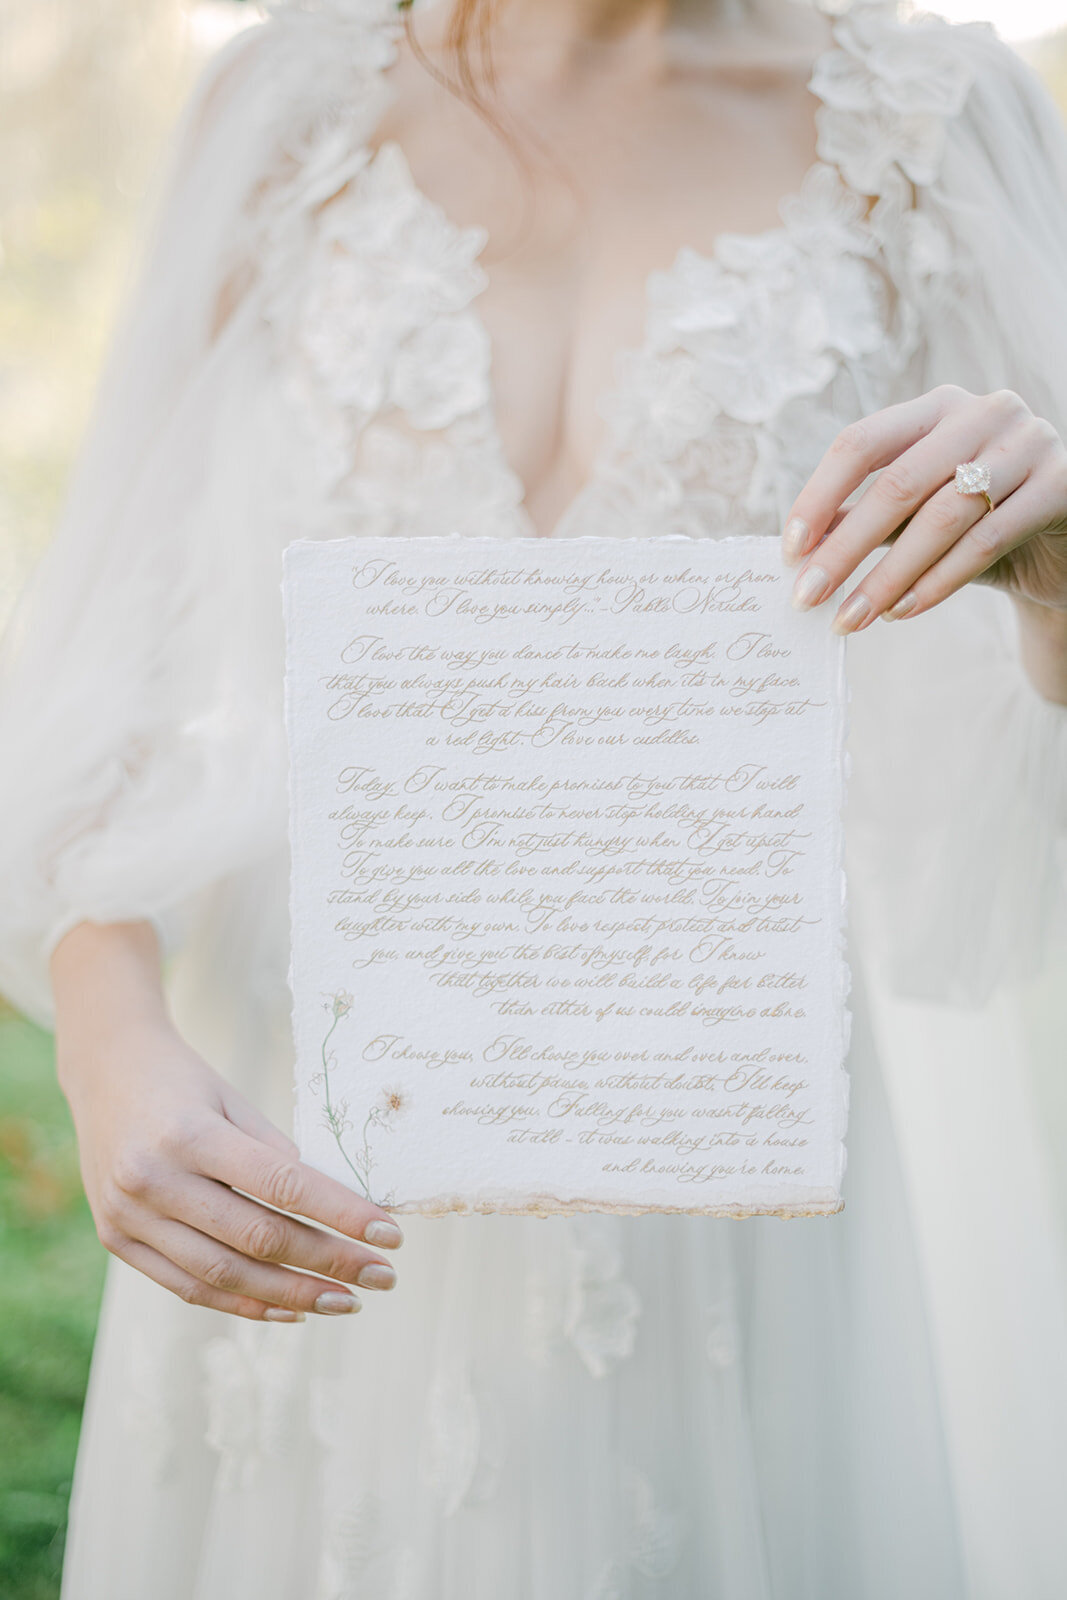 "I love you without knowing how, or when, or from
where. I love you simply..." - Pablo Neruda
I love the way you dance to make me laugh. I love
that you always push my hair back when it's in my face.
I love that I get a kiss from you every time we stop at
a red light. I love our cuddles.
Today, I want to make promises to you that I will
always keep. I promise to never stop holding your hand
To make sure I'm not just hungry when I get upset
To give you all the love and support that you need. To
stand by your side while you face the world. To join your
laughter with my own. To love, respect, protect and trust
you, and give you the best of myself, for I know
that together we will build a life far better
than either of us could imagine alone.
I choose you, I'll choose you over and over and over,
without pause, without doubt, I'll keep
choosing you. Falling for you wasn't falling
at all - it was walking into a house
and knowing you're home.